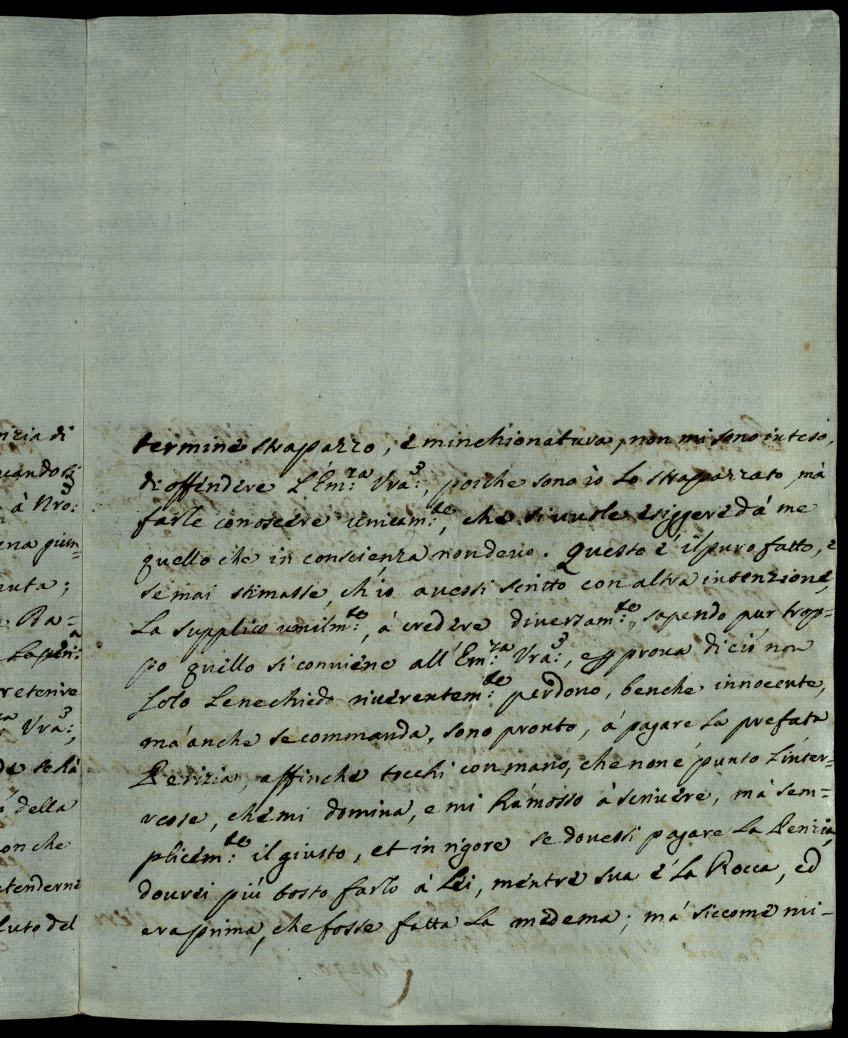 nizia di
uando si
à Nro:
una giun=
enuta;
e Ra=
La peri:
retenive
Vra:,
de se hà
della
on che
etenderne
luto del
termine strapazzo, è minchionatura, non mi sono inteso,
di offendere L'Em:za Vra:, poiche sono io Lo strapazzato mà
farle conoscere unicam:te, che si vuole esiggere dà me
quello che in conscienza non devo. Questo è il puro fatto, e
se mai stimasse, ch'io avessi scritto con altra intenzione,
La supplico umilm:te, à credere diversam:te, sapendo pur trop=
po quello si conviene all'Em:za Vra:, e p prova di ciò non
solo Le ne chiedo riverentem:te perdono, benche innocente,
mà anche se commanda, sono pronto, à pagare La prefata
Perizia, affinche tocchi con mano, che non è punto L'inter=
resse, che mi domina, e mi hà mosso à scrivere, mà sem=
plicem:te il giusto, et in rigore se dovessi pagare La Perizia,
dovrei più tosto farlo à Lei, mentre sua è La Rocca, ed
era prima, che fosse fatta La medema; mà siccome mi-